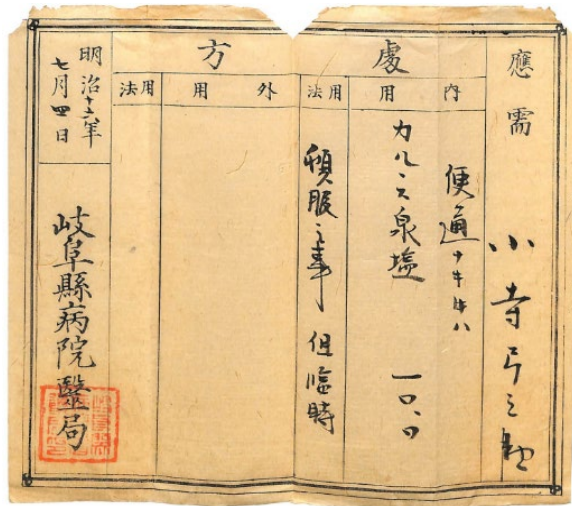 應需
小寺弓之助
處方
内用
便通ナキ時ハ
カルヽス泉塩 一〇、〇
用法
頓服之事 但臨時
外用
用法
明治十六年
七月四日
岐阜縣病院醫局